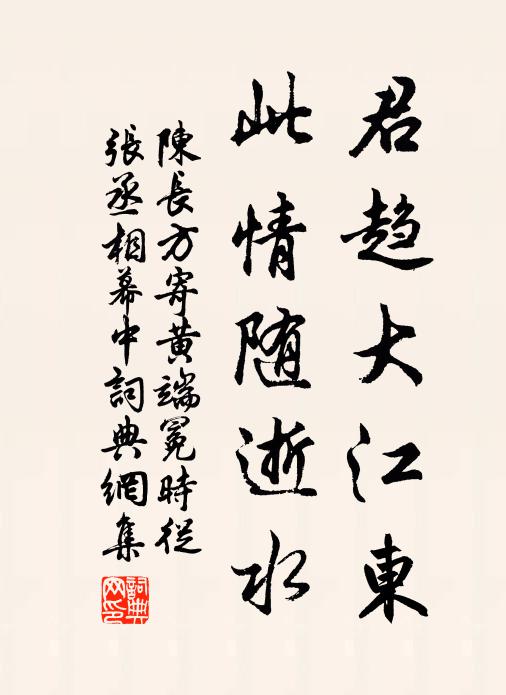 君趋大江東
此情随逝水
陳長方寄黄端冕時從
張丞相幕中詞典網集
詞典
网印